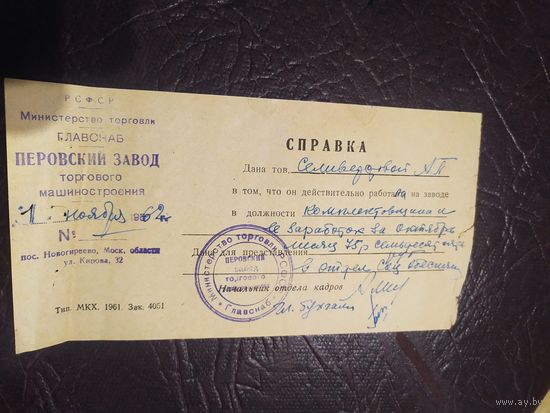 РСФСР
Министерство торговли
ГЛАВСНАБ
ПЕРОВСКИЙ ЗАВОД
торгового
машиностроения
"1" ноября 1962 г.
№
пос. Новогиреево, Моск. области
ул. Кирова, 32
Тип. МКХ. 1961. Зак. 4051
СПРАВКА
Дана тов. Селиверстовой А П
в том, что он действительно работала на заводе
в должности комплектовщицы и
её заработок за октябрь
месяц 75 р. семьдесят
Дана для представления в отдел соц обеспечен
Начальник отдела кадров
Гл. бухгалт
Министерство торговли
Главснаб
ПЕРОВСКИЙ
ЗАВОД
торгового
www.ay.by